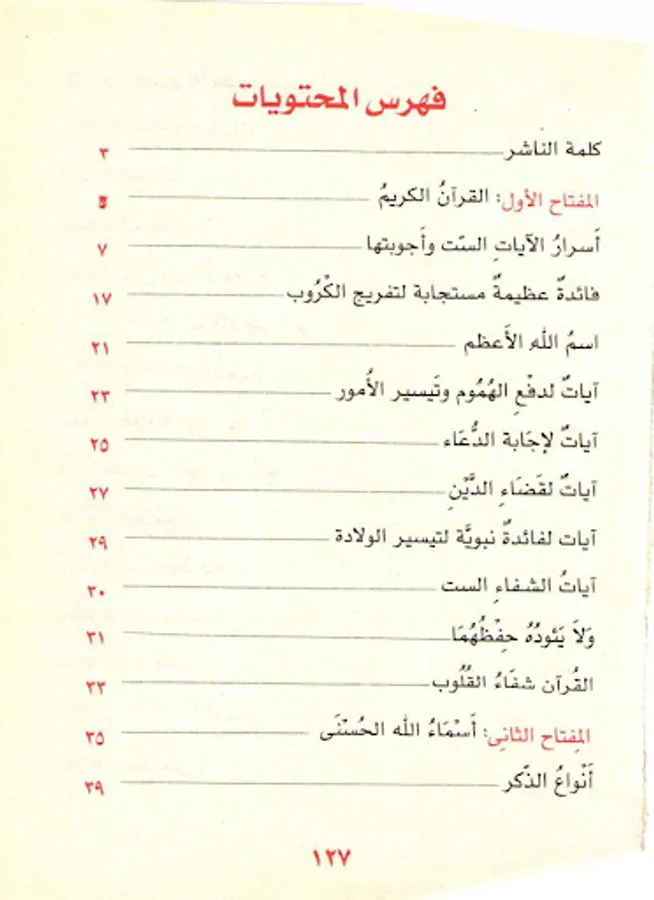 فهرس المحتويات
كلمة الناشر ٣
المفتاح الأول: القرآنُ الكريمُ ٥
أسرارُ الآياتِ الستّ وأجوبتها ٧
فائدةٌ عظيمةٌ مستجابة لتفريج الكُرُوب ١٧
اسمُ اللهِ الأَعظم ٢١
آياتٌ لدفْعِ الهُمُوم وتَيسير الأُمور ٢٣
آياتٌ لإجَابة الدُّعَاء ٢٥
آياتٌ لقضَاءِ الدَّيْنِ ٢٧
آيات لفائدةٌ نبويَّة لتيسير الولادة ٢٩
آياتُ الشفاءِ الست ٣٠
وَلاَ يَئودُهُ حِفْظُهُمَا ٣١
القُرآن شفَاءُ القُلُوب ٣٣
المِفتاح الثانِى: أَسْمَاءُ الله الحُسْنَى ٣٥
أَنْواعُ الذّكر ٣٩
١٢٧